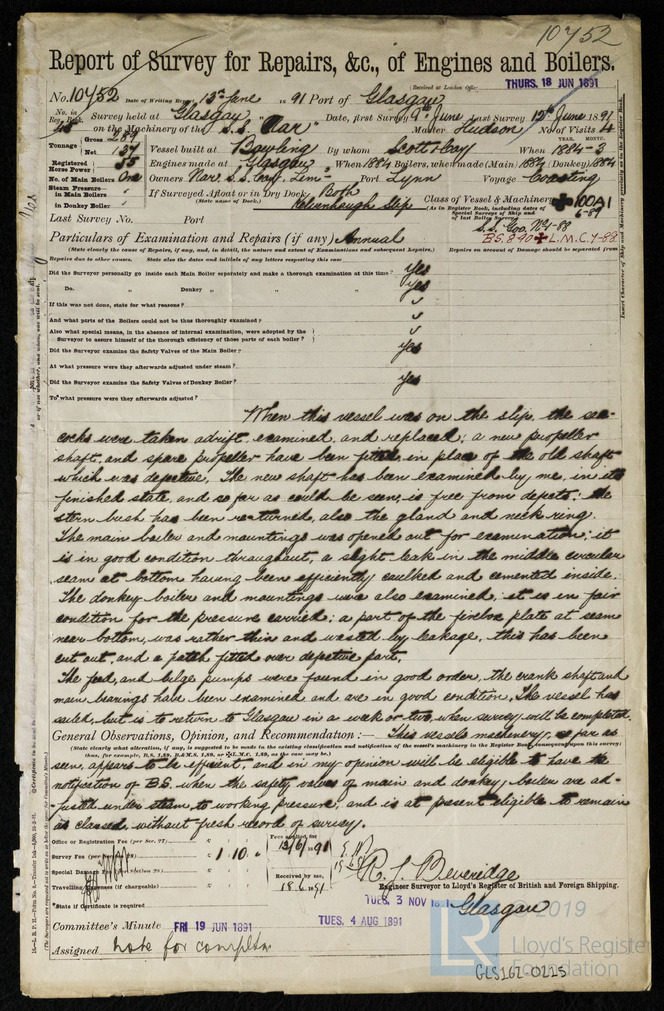 10752
Report of Survey for Repairs, &c., of Engines and Boilers.
(Received at London Office THURS. 18 JUN 1891
No. 10752 Date of Writing Report 13th June 1891 Port of Glasgow
No. in Reg. Book. Survey held at Glasgow Date, first Survey 9th June Last Survey 12th June 1891
on the Machinery of the S.S. "Nar" Master Hudson No of Visits 4
Tonnage Gross 289 Net 137 Vessel built at Bowling By whom Scott & Coy When 1884-3
YEAR. MONTH.
Registered Horse Power 55 Engines made at Glasgow When 1884 Boilers, when made (Main) 1884 (Donkey) 1884
No. of Main Boilers One Owners Nar S.S. Coy. Limd Port Lynn Voyage Coasting
Steam Pressure— in Main Boilers If Surveyed Afloat or in Dry Dock Both
(State name of Dock.) Kelvinhaugh Slip
in Donkey Boiler
Class of Vessel & Machinery 100A1
(As in Register Book, including dates of Special Surveys of Ship and of last Boiler Survey) 6-89
S.S. No. 1-88
B.S. 8.90 L.M.C. 4-88
Last Survey No. Port
Particulars of Examination and Repairs (if any) Annual
(State clearly the cause of Repairs, if any, and, in detail, the nature and extent of Examinations and subsequent Repairs.) Repairs on account of Damage should be separated from
Repairs due to other causes. State also the dates and initials of any letters respecting this case
Did the Surveyor personally go inside each Main Boiler separately and make a thorough examination at this time? Yes
Do. " Donkey " " " Yes
If this was not done, state for what reasons?
And what parts of the Boilers could not be thus thoroughly examined?
Also what special means, in the absence of internal examination, were adopted by the
Surveyor to assure himself of the thorough efficiency of those parts of each boiler?
Did the Surveyor examine the Safety Valves of the Main Boiler? Yes
At what pressure were they afterwards adjusted under steam?
Did the Surveyor examine the Safety Valves of Donkey Boiler? Yes
To what pressure were they afterwards adjusted?
When this vessel was on the slip, the sea-
cocks were taken adrift, examined, and replaced; a new propeller
shaft, and spare propeller have been fitted in place of the old shaft
which was defective. The new shaft has been examined by me, in its
finished state, and so far as could be seen, is free from defects: the
stern bush has been re-turned, also the gland and neck ring.
The main boiler and mountings was opened out for examination; it
is in good condition throughout, a slight leak in the middle circular
seam at bottom having been efficiently caulked and cemented inside.
The donkey boiler and mountings were also examined, it is in fair
condition for the pressure carried; a part of the firebox plate at seam
near bottom, was rather thin and wasted by leakage, this has been
cut out, and a patch fitted over defective part.
The feed, and bilge pumps were found in good order, the crank shaft and
main bearings have been examined and are in good condition. The vessel has
sailed, but is to return to Glasgow in a week or two, when survey will be completed.
General Observations, Opinion, and Recommendation:— This vessels machinery, so far as
(State clearly what alteration, if any, is suggested to be made in the existing classification and notification of the vessel's machinery in the Register Book, consequent upon this survey;
seen, appears to be efficient, and in my opinion will be eligible to have the
notification of B.S. when the safety valves of main and donkey boiler are ad-
-justed under steam, to working pressure, and is at present eligible to remain
as classed, without fresh record of survey.
Office or Registration Fee (per Sec. 27) Fees applied for
Survey Fee 1 . 10 . " 15/6/1891
Special Damage Fee Received by me,
Travelling Expenses (if chargeable) 18.6.91
R. L. Beveridge
Engineer Surveyor to Lloyd's Register of British and Foreign Shipping.
State if Certificate is required
TUES. 3 NOV 1891 Glasgow
Committee's Minute FRI 19 JUN 1891 TUES. 4 AUG 1891
Assigned note for completn
© 2019
LR
Lloyd's Register
Foundation
GLS162-0225